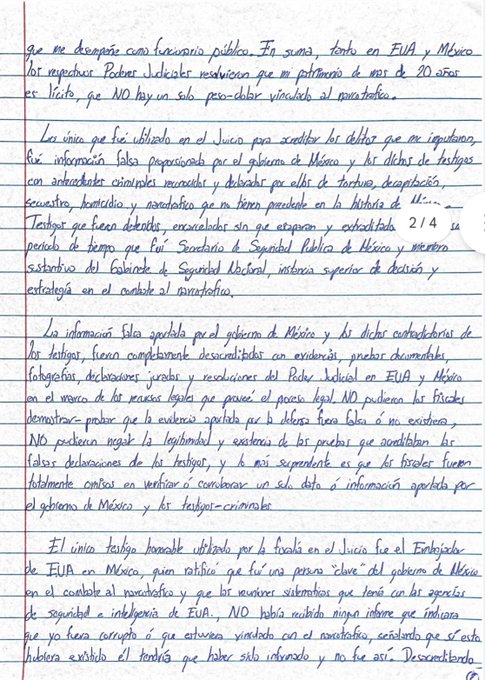 que me desempeñe como funcionario público. En suma, tanto en EUA y México
los respectivos Poderes Judiciales resolvieron que mi patrimonio de mas de 20 años
es lícito, que NO hay un solo peso-dolar vinculado al narcotrafico.
Los único que fué utilizado en el Juicio para acreditar los delitos que me imputaron,
fué información falsa proporsionada por el gobierno de México y los dichos de testigos
con antecedentes criminales reconocidos y declarados por ellos de tortura, decapitación,
secuestro, homicidio y narcotrafico que no tienen precedente en la historia de
Testigos que fueron detenidos, encarcelados sin que escaparan y extraditado
2/4
periodo de tiempo que fuí Secretario de Seguridad Publica de México y miembro
sustantivo del Gabinete de Seguridad Nacional, instancia superior de decisión y
estrategia en el combate al narcotrafico.
La información falsa aportada por el gobierno de México y los dichos contradictorios de
los testigos, fueron completamente desacreditados con evidencias, pruebas documentales,
fotografías, declaraciones juradas y resoluciones del Poder Judicial en EUA y México
en el marco de los recursos legales que proveé el proceso legal. NO pudieron los fiscales
demostrar-probar que la evidencia aportada por la defensa fuera falsa ó no existiera,
NO pudieron negar la legitimidad y existencia de las pruebas que acreditaban las
falsas declaraciones de los testigos, y lo mas sorprendente es que los fiscales fueron
totalmente omisos en verificar ó corroborar un solo dato ó información aportada por
el gobierno de México y los testigos-criminales
El único testigo honorable utilizado por la fiscalía en el Juicio fue el Embajador
de EUA en México, quien ratificó que fuí una persona "clave" del gobierno de México
en el combate al narcotrafico y que las reuniones sistematicas que tenía con las agencias
de seguridad e inteligencia de EUA., NO había recibido ningun informe que indicara
que yo fuera corrupto ó que estuviera vinculado con el narcotrafico, señalando que sí esto
hubiera existido él tendría que haber sido informado y no fue así. Desacreditando